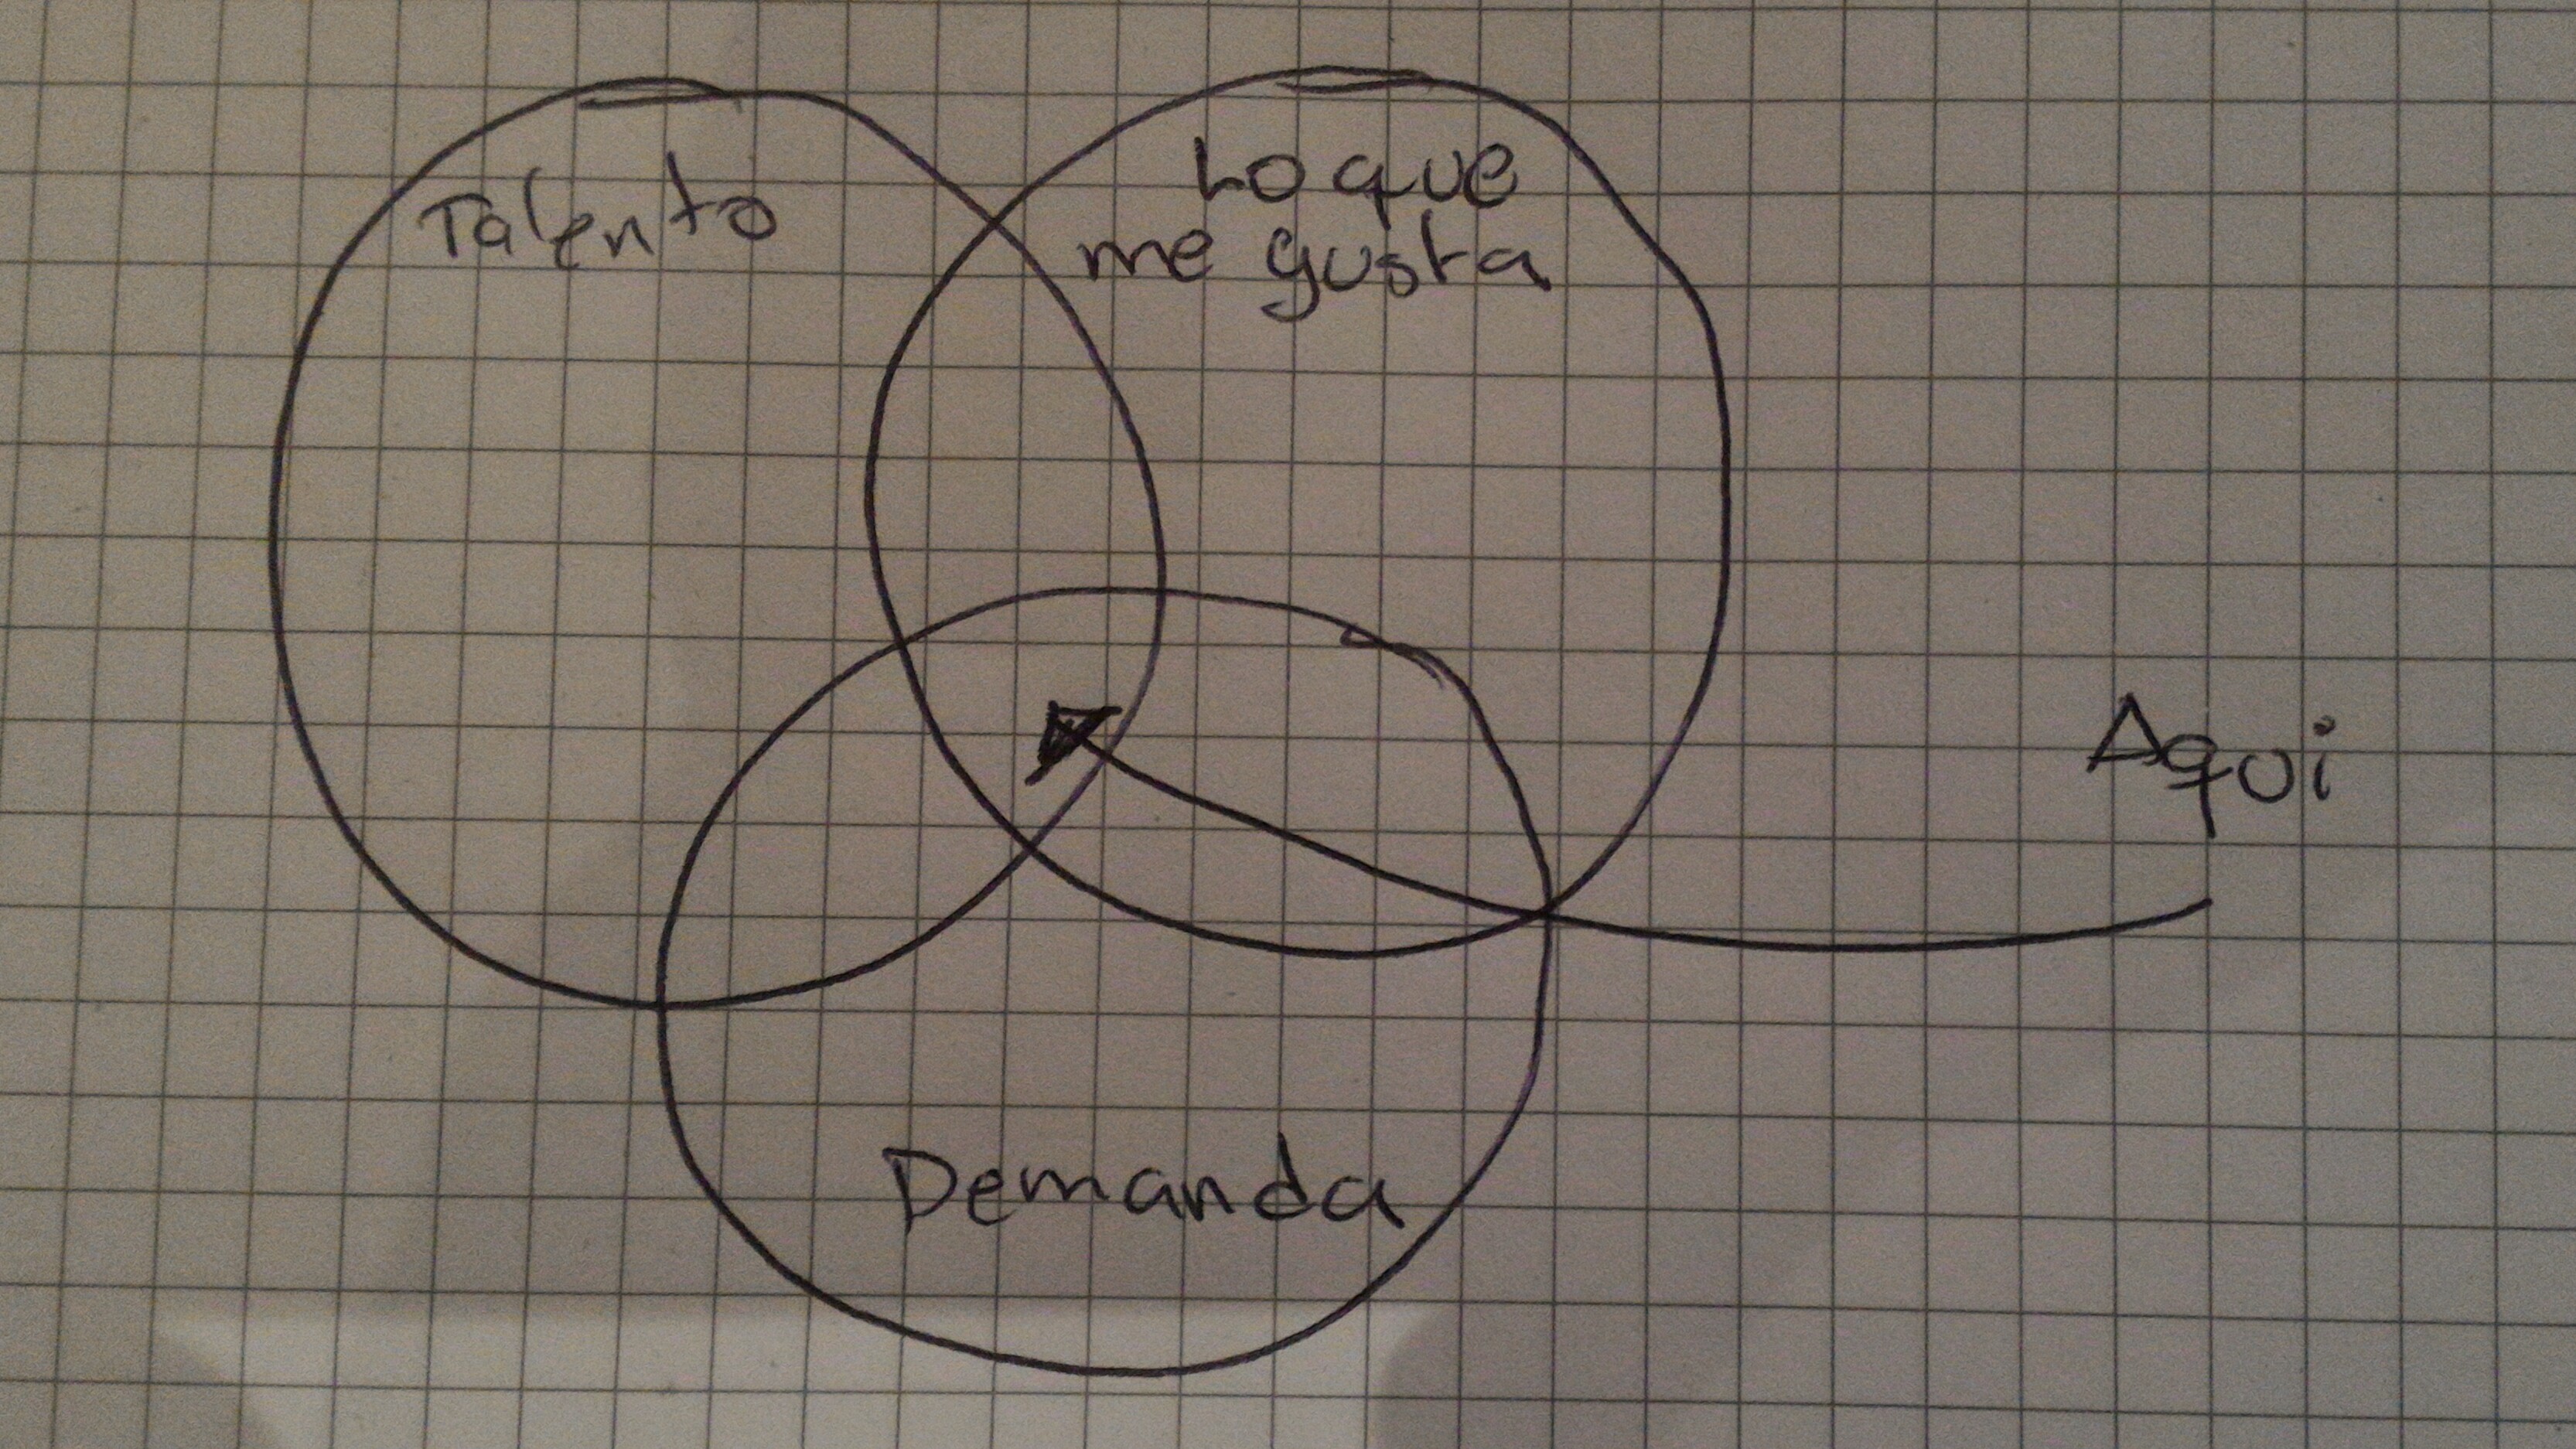 Talento
Lo que
me gusta
Aqui
Demanda